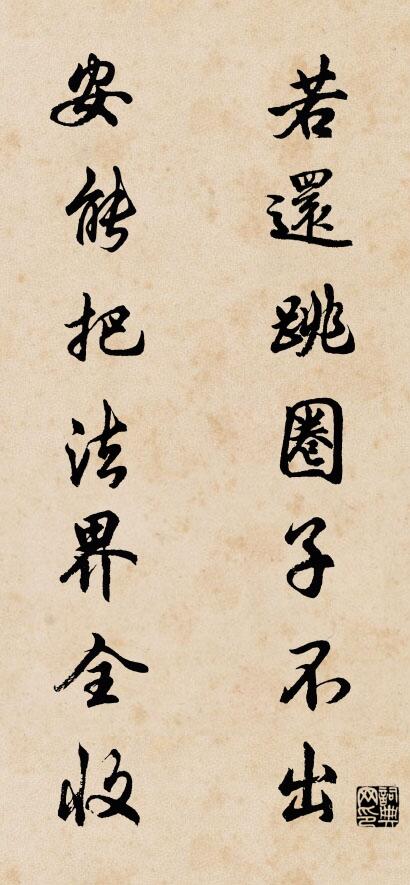 若還跳圈子不出
安能把法界全收
詞典网印